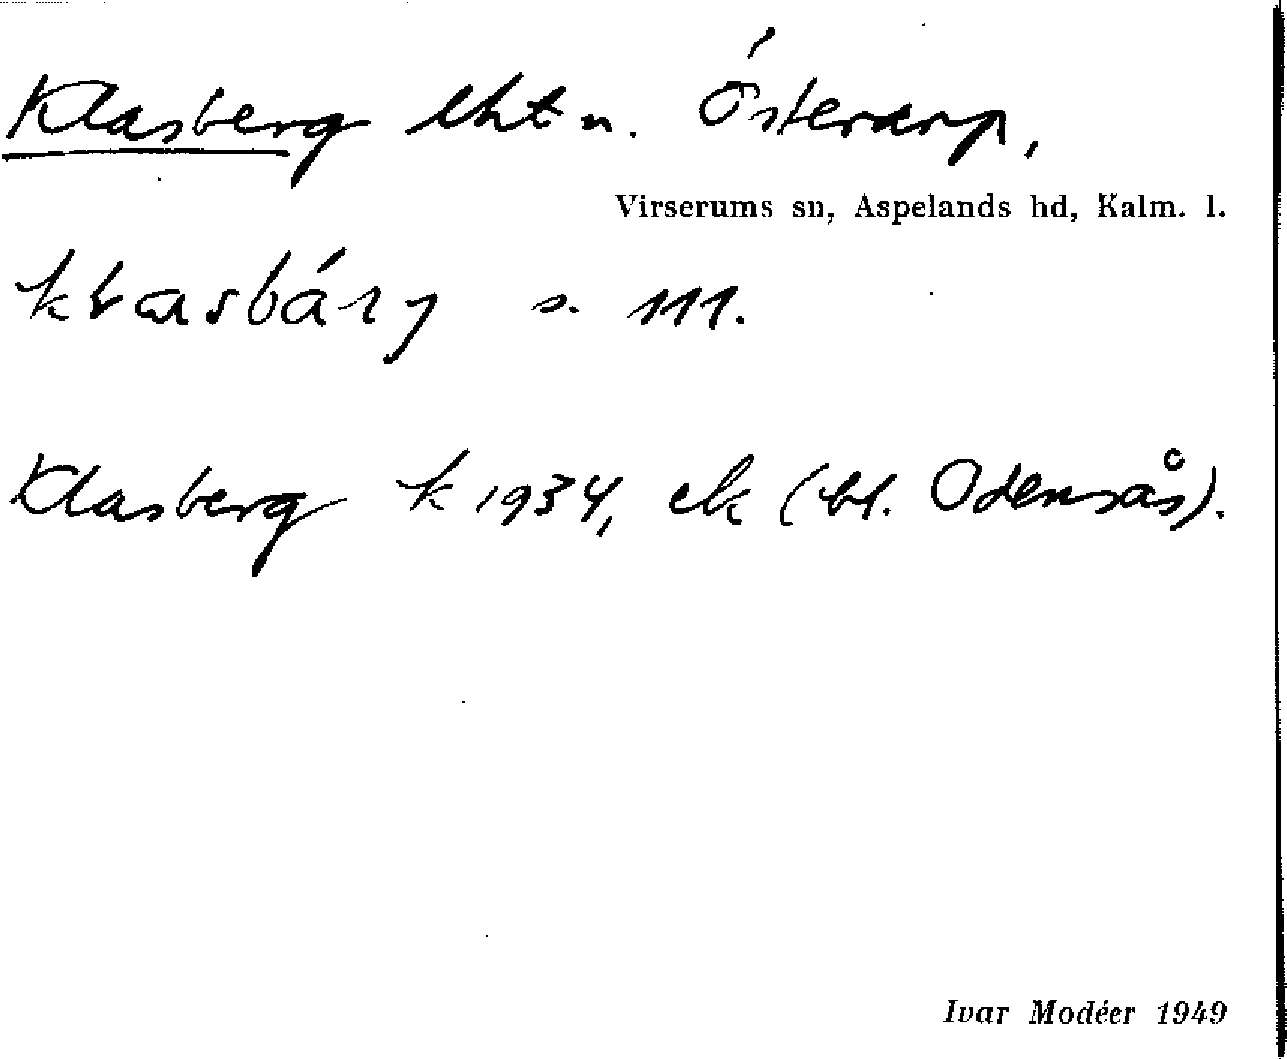 Klasberg lht u. Österarp,
Virserums sn, Aspelands hd, Kalm. l.
s. 111.
Klasberg k 1934, ek (bl. Odensås).
Ivar Modéer 1949